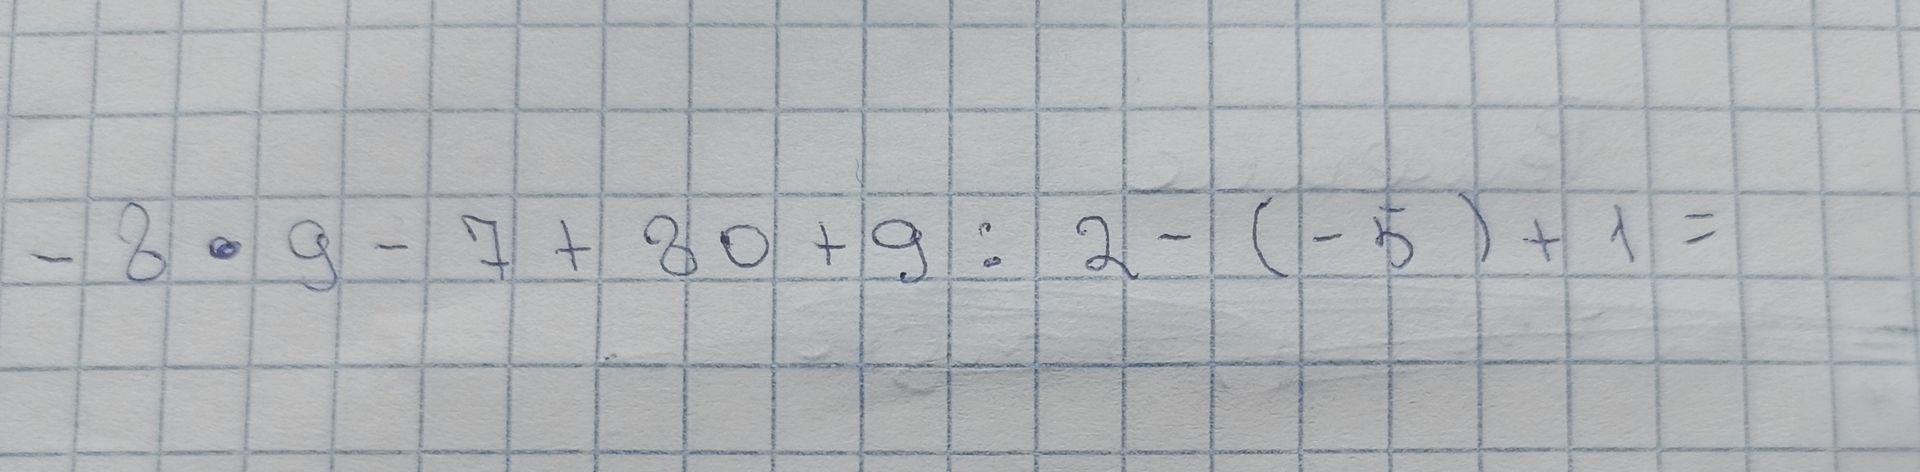 -8•9-7+80+9:2-(-5)+1=